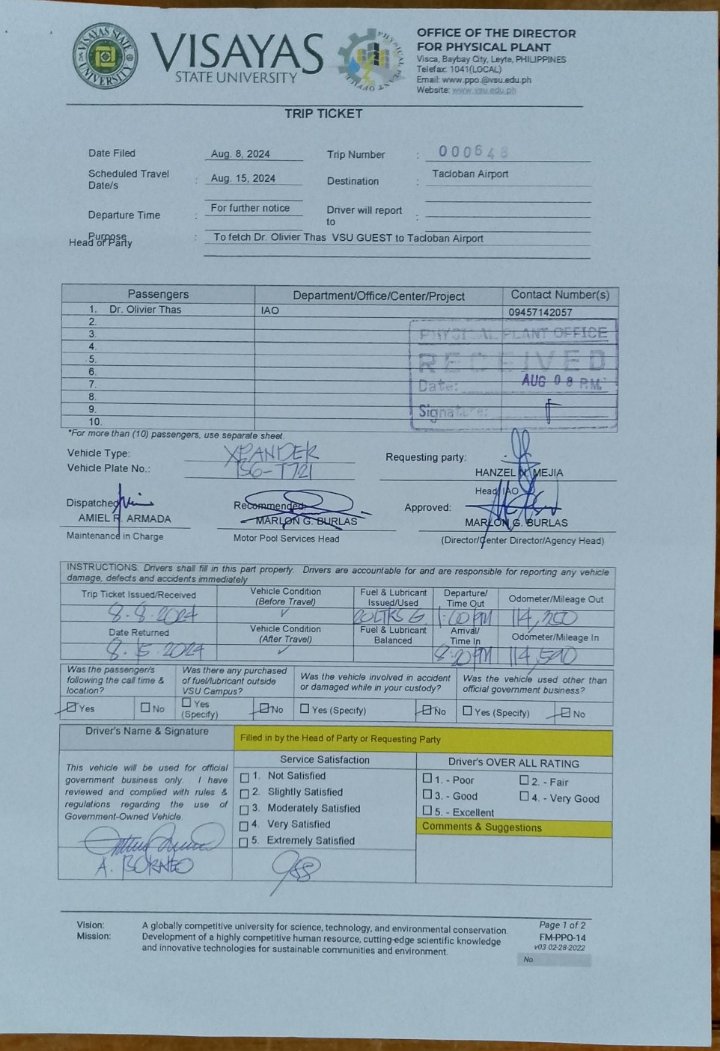 VISAYAS STATE UNIVERSITY
VISAYAS
STATE UNIVERSITY
PHYSICAL PLANT OFFICE
OFFICE OF THE DIRECTOR
FOR PHYSICAL PLANT
Visca, Baybay City, Leyte, PHILIPPINES
Telefax: 1041(LOCAL)
Email: www.ppo.@vsu.edu.ph
Website: www.vsu.edu.ph
TRIP TICKET
Date Filed Aug. 8, 2024 Trip Number : 000648
Scheduled Travel Date/s : Aug. 15, 2024 Destination : Tacloban Airport
Departure Time : For further notice Driver will report to :
Purpose : To fetch Dr. Olivier Thas VSU GUEST to Tacloban Airport
Head of Party
Passengers Department/Office/Center/Project Contact Number(s)
1. Dr. Olivier Thas IAO 09457142057
2.
3.
4.
5.
6.
7.
8.
9.
10.
PHYSICAL PLANT OFFICE
RECEIVED
Date: AUG 08 P.M.
Signature:
*For more than (10) passengers, use separate sheet
Vehicle Type: XPANDER Requesting party:
Vehicle Plate No.: HANZEL N. MEJIA
Head, IAO
Dispatched Recommended Approved:
AMIEL R. ARMADA MARLON G. BURLAS MARLON G. BURLAS
Maintenance in Charge Motor Pool Services Head (Director/Center Director/Agency Head)
INSTRUCTIONS: Drivers shall fill in this part properly. Drivers are accountable for and are responsible for reporting any vehicle
damage, defects and accidents immediately
Trip Ticket Issued/Received Vehicle Condition (Before Travel) Fuel & Lubricant Issued/Used Departure/ Time Out Odometer/Mileage Out
8-8-2024 ✓ 1:00 PM
Date Returned Vehicle Condition (After Travel) Fuel & Lubricant Balanced Arrival/ Time In Odometer/Mileage In
✓ 8:20 PM
Was the passenger/s following the call time & location? Was there any purchased of fuel/lubricant outside VSU Campus? Was the vehicle involved in accident or damaged while in your custody? Was the vehicle used other than official government business?
☑ Yes ☐ No ☐ Yes (Specify) ☑ No ☐ Yes (Specify) ☑ No ☐ Yes (Specify) ☑ No
Driver's Name & Signature Filled in by the Head of Party or Requesting Party
Service Satisfaction Driver's OVER ALL RATING
This vehicle will be used for official
government business only. I have
reviewed and complied with rules &
regulations regarding the use of
Government-Owned Vehicle.
A. BORNEO
☐ 1. Not Satisfied
☐ 2. Slightly Satisfied
☐ 3. Moderately Satisfied
☐ 4. Very Satisfied
☐ 5. Extremely Satisfied
☐ 1. - Poor ☐ 2. - Fair
☐ 3. - Good ☐ 4. - Very Good
☐ 5. - Excellent
Comments & Suggestions
Vision: A globally competitive university for science, technology, and environmental conservation
Mission: Development of a highly competitive human resource, cutting-edge scientific knowledge
and innovative technologies for sustainable communities and environment.
Page 1 of 2
FM-PPO-14
v03 02-28-2022
No